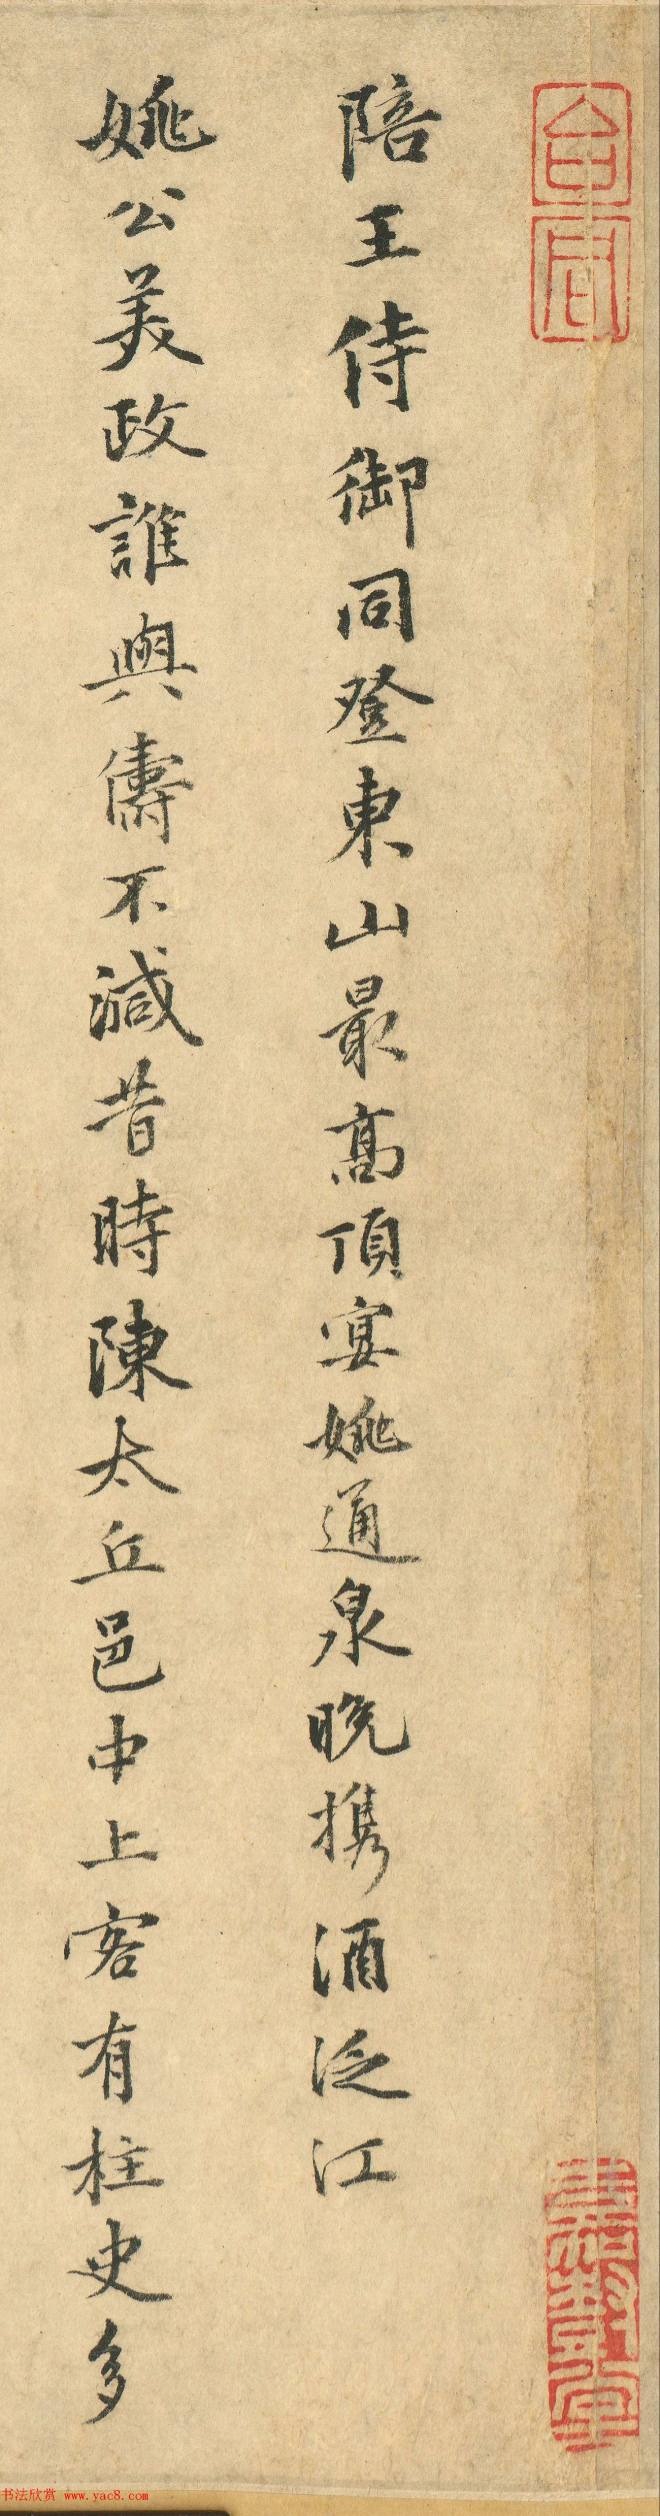 陪王侍御同登東山最高頂宴姚通泉晚攜酒泛江
姚公美政誰與儔不減昔時陳太丘邑中上客有柱史多
书法欣赏 www.yac8.com